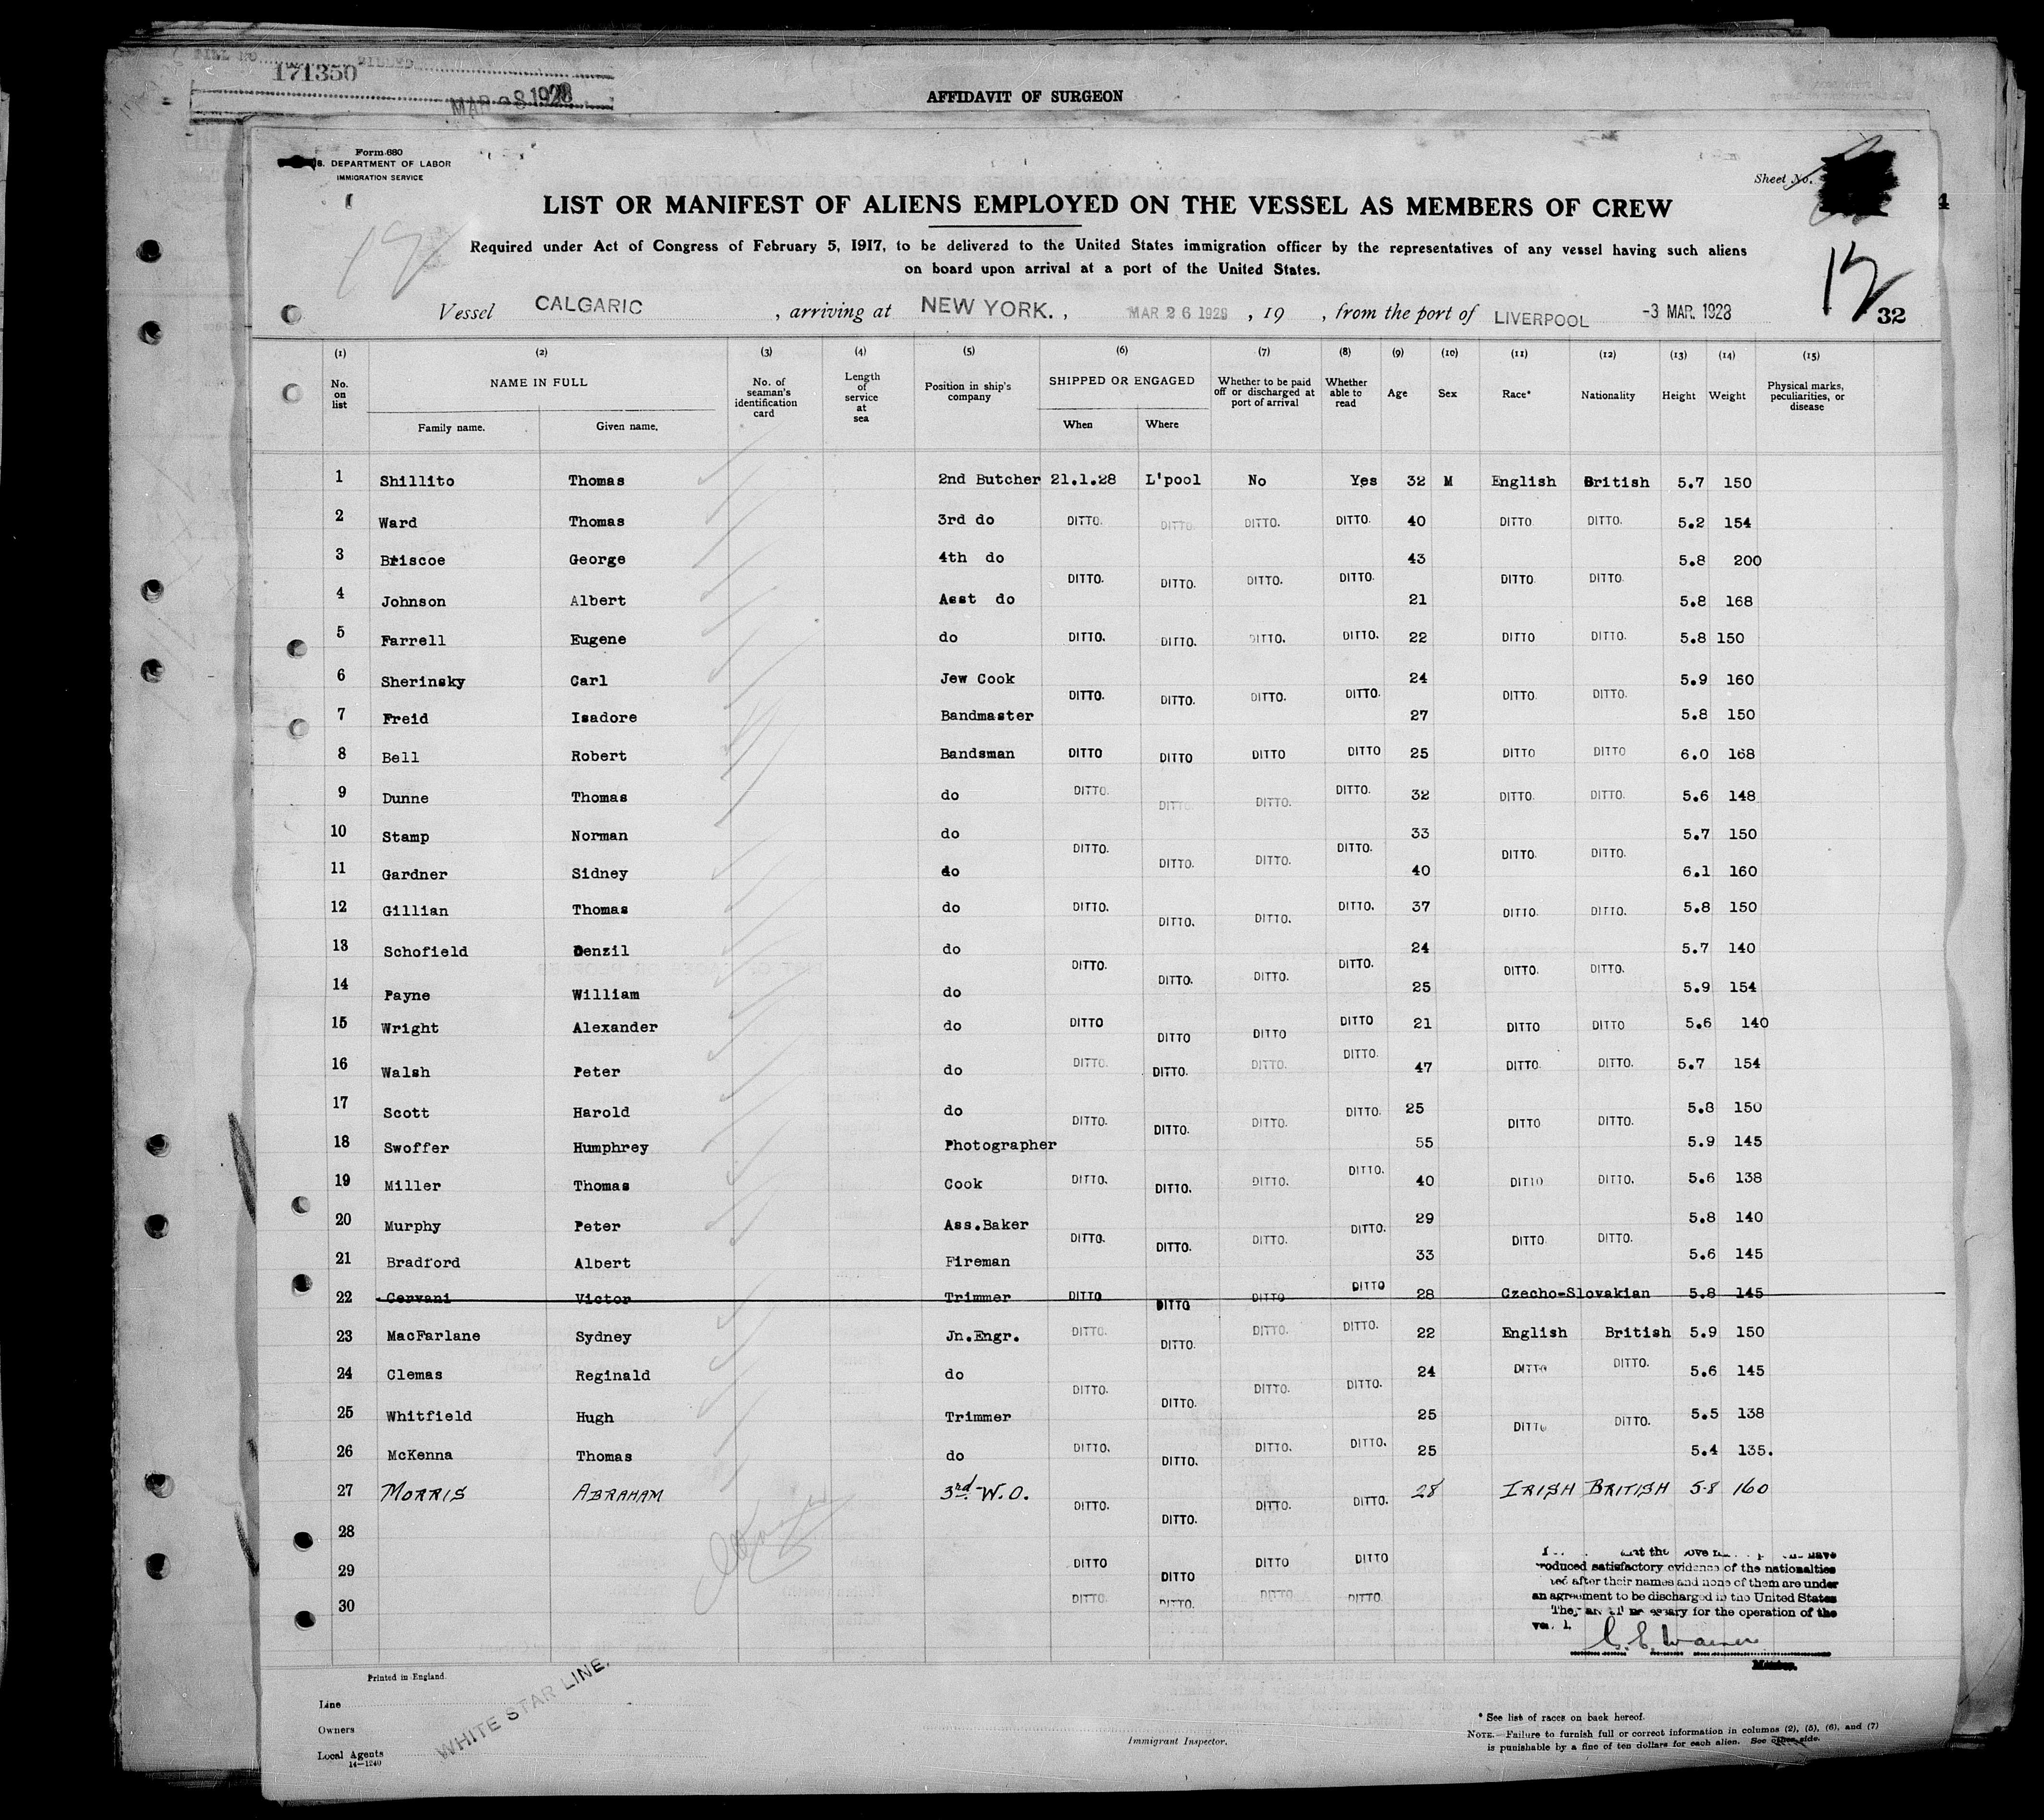 171350
MAR 28 1928
AFFIDAVIT OF SURGEON
Form 680
S. DEPARTMENT OF LABOR
IMMIGRATION SERVICE
Sheet No.
4
LIST OR MANIFEST OF ALIENS EMPLOYED ON THE VESSEL AS MEMBERS OF CREW
Required under Act of Congress of February 5, 1917, to be delivered to the United States immigration officer by the representatives of any vessel having such aliens
on board upon arrival at a port of the United States.
Vessel CALGARIC, arriving at NEW YORK., MAR 26 1928, 19 , from the port of LIVERPOOL -3 MAR. 1928
32
(1) (2) (3) (4) (5) (6) (7) (8) (9) (10) (11) (12) (13) (14) (15)
No. on list NAME IN FULL Family name. Given name. No. of seaman's identification card Length of service at sea Position in ship's company SHIPPED OR ENGAGED When Where Whether to be paid off or discharged at port of arrival Whether able to read Age Sex Race* Nationality Height Weight Physical marks, peculiarities, or disease
1 Shillito Thomas 2nd Butcher 21.1.28 L'pool No Yes 32 M English British 5.7 150
2 Ward Thomas 3rd do DITTO. DITTO. DITTO. DITTO. 40 DITTO DITTO. 5.2 154
3 Briscoe George 4th do 43 5.8 200
DITTO. DITTO. DITTO. DITTO. DITTO DITTO
4 Johnson Albert Asst do 21 5.8 168
5 Farrell Eugene do DITTO. DITTO. DITTO. DITTO. 22 DITTO DITTO. 5.8 150
6 Sherinsky Carl Jew Cook 24 5.9 160
DITTO. DITTO. DITTO. DITTO. DITTO. DITTO.
7 Freid Isadore Bandmaster 27 5.8 150
8 Bell Robert Bandsman DITTO DITTO DITTO DITTO 25 DITTO DITTO 6.0 168
9 Dunne Thomas do DITTO. DITTO. DITTO. DITTO. 32 DITTO. DITTO. 5.6 148
10 Stamp Norman do 33 5.7 150
DITTO. DITTO. DITTO. DITTO. DITTO. DITTO.
11 Gardner Sidney do 40 6.1 160
12 Gillian Thomas do DITTO. DITTO. DITTO. DITTO. 37 DITTO. DITTO. 5.8 150
13 Schofield Denzil do 24 5.7 140
DITTO. DITTO. DITTO. DITTO. DITTO. DITTO.
14 Payne William do 25 5.9 154
15 Wright Alexander do DITTO DITTO DITTO DITTO 21 DITTO DITTO 5.6 140
16 Walsh Peter do DITTO. DITTO. DITTO. DITTO. 47 DITTO. DITTO. 5.7 154
17 Scott Harold do DITTO. 25 5.8 150
DITTO. DITTO. DITTO. DITTO DITTO.
18 Swoffer Humphrey Photographer 55 5.9 145
19 Miller Thomas Cook DITTO. DITTO. DITTO. DITTO. 40 DITTO DITTO. 5.6 138
20 Murphy Peter Ass.Baker 29 5.8 140
DITTO. DITTO. DITTO. DITTO. DITTO DITTO.
21 Bradford Albert Fireman 33 5.6 145
22 Cervani Victor Trimmer DITTO DITTO DITTO DITTO 28 Czecho-Slovakian 5.8 145
23 MacFarlane Sydney Jn.Engr. DITTO. DITTO. DITTO. DITTO. 22 English British 5.9 150
24 Clemas Reginald do 24 DITTO DITTO. 5.6 145
DITTO. DITTO. DITTO. DITTO.
25 Whitfield Hugh Trimmer 25 DITTO DITTO. 5.5 138
26 McKenna Thomas do DITTO. DITTO. DITTO. DITTO. 25 5.4 135.
27 MORRIS ABRAHAM 3rd W.O. 28 IRISH BRITISH 5.8 160
DITTO. DITTO. DITTO. DITTO.
28
29 DITTO DITTO DITTO DITTO
30 DITTO. DITTO. DITTO. DITTO.
produced satisfactory evidence of the nationalties
after their names and none of them are under
an agreement to be discharged in the United States
for the operation of the
Master.
Printed in England.
Line
Owners
Local Agents
14-1240
WHITE STAR LINE.
Immigrant Inspector.
* See list of races on back hereof.
NOTE.—Failure to furnish full or correct information in columns (2), (5), (6), and (7)
is punishable by a fine of ten dollars for each alien. See other side.